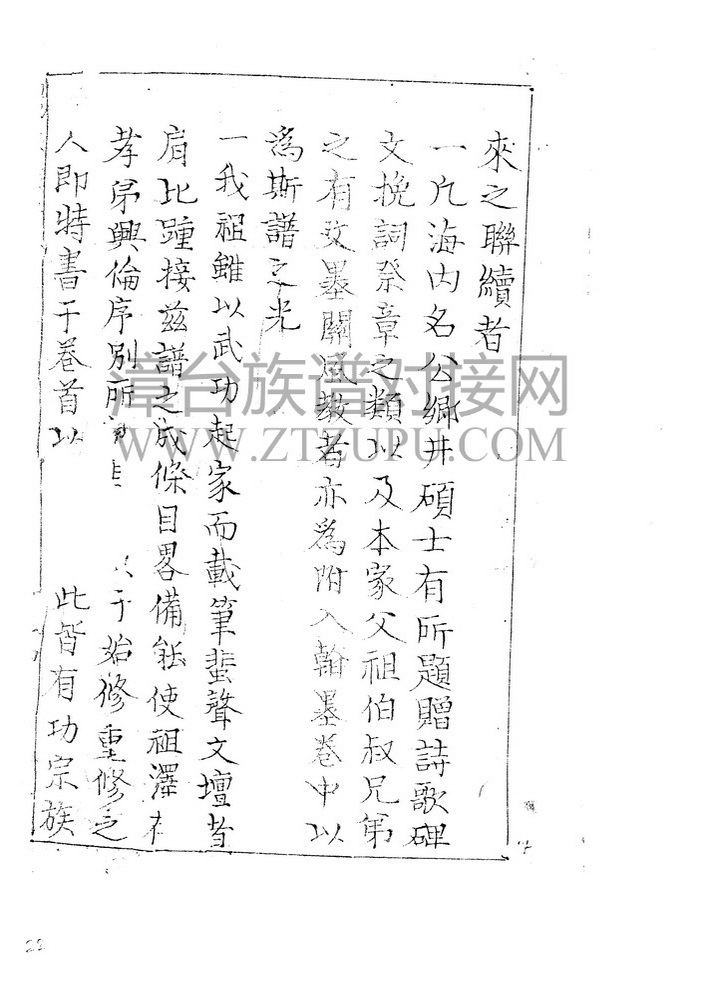 來之聯續者
一凡海内名公鄉井碩士有所題贈詩歌碑
文挽詞祭章之類以及本家父祖伯叔兄弟
之有文墨關風教者亦為附入翰墨卷中以
為斯譜之光
一我祖雖以武功起家而載筆蜚聲文壇者
肩比踵接兹譜之成條目畧備能使祖澤
孝弟興倫序別所 于始修重修之
人即特書于卷首以 此皆有功宗族
漳台族谱对接网
WWW.ZTZUPU.COM